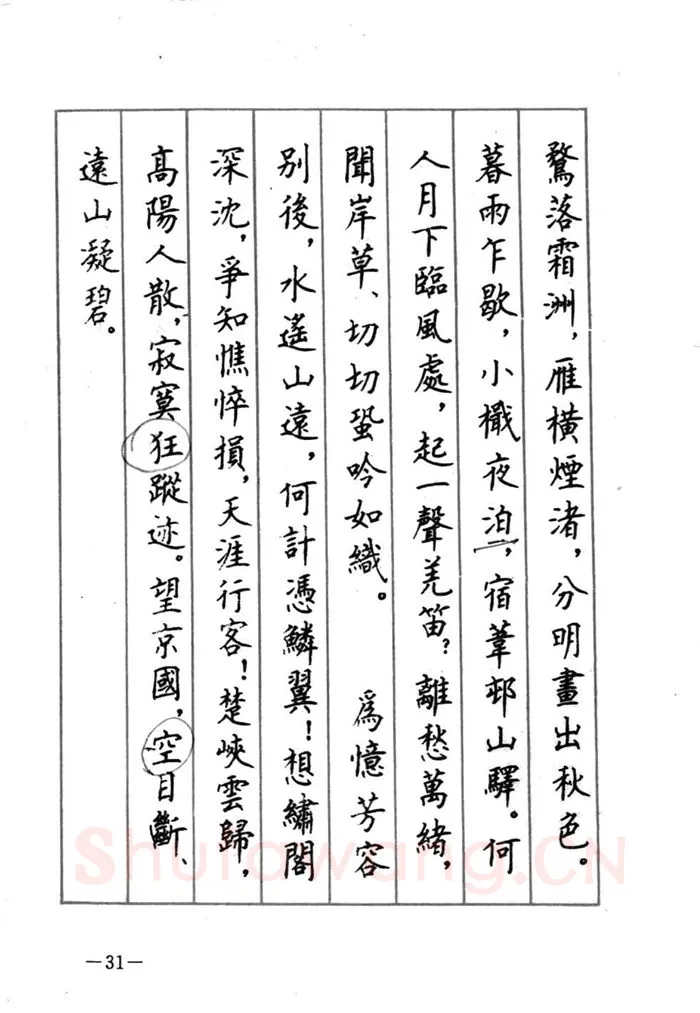 鶩落霜洲，雁橫煙渚，分明畫出秋色。
暮雨乍歇，小檝夜泊，宿葦邨山驛。何
人月下臨風處，起一聲羌笛？離愁萬緒，
聞岸草、切切蛩吟如織。 爲憶芳容
別後，水遙山遠，何計憑鱗翼！想繡閣
深沈，爭知憔悴損，天涯行客！楚峽雲歸，
高陽人散，寂寞狂蹤迹。望京國，空目斷、
遠山凝碧。
—31—
Shufawang.CN